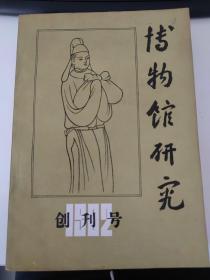 博物馆研究
创刊号
1982